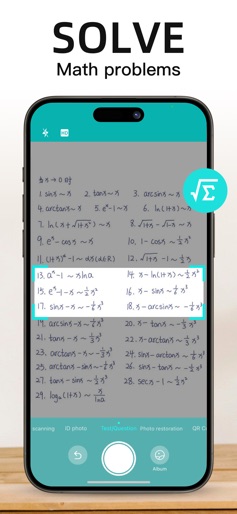 SOLVE
Math problems
HD
√Σ
当 x → 0 时
1. sinx ~ x 2. tanx ~ x 3. arcsinx ~ x
4. arctanx ~ x 5. eˣ-1 ~ x 6. ln(1+x) ~ x
7. ln(x+√(1+x²)) ~ x 8. √(1+x) - √(1-x) ~ x
9. eˣ - cosx ~ x 10. 1-cosx ~ ½x²
11. (1+x)^α -1 ~ αx (α∈R) 12. √(1+x) -1 ~ ½x
13. aˣ-1 ~ xlna 14. x-ln(1+x) ~ ½x²
15. eˣ-1-x ~ ½x² 16. x - sinx ~ ⅙x³
17. sinx-x ~ -⅙x³ 18. x-arcsinx ~ -⅙x³
19. arcsinx-x ~ ⅙x³ 20. x-tanx ~ -⅓x³
21. tanx-x ~ ⅓x³ 22. x-arctanx ~ ⅓x³
23. arctanx-x ~ -⅓x³ 24. sinx-arctanx ~ ⅙x³
25. arctanx-sinx ~ -⅙x³ 26. sinx-tanx ~ -½x³
27. tanx-sinx ~ ½x³ 28. secx-1 ~ ½x²
29. logₐ(1+x) ~ x/lna
scanning ID photo Test/Question Photo restoration QR C
Album